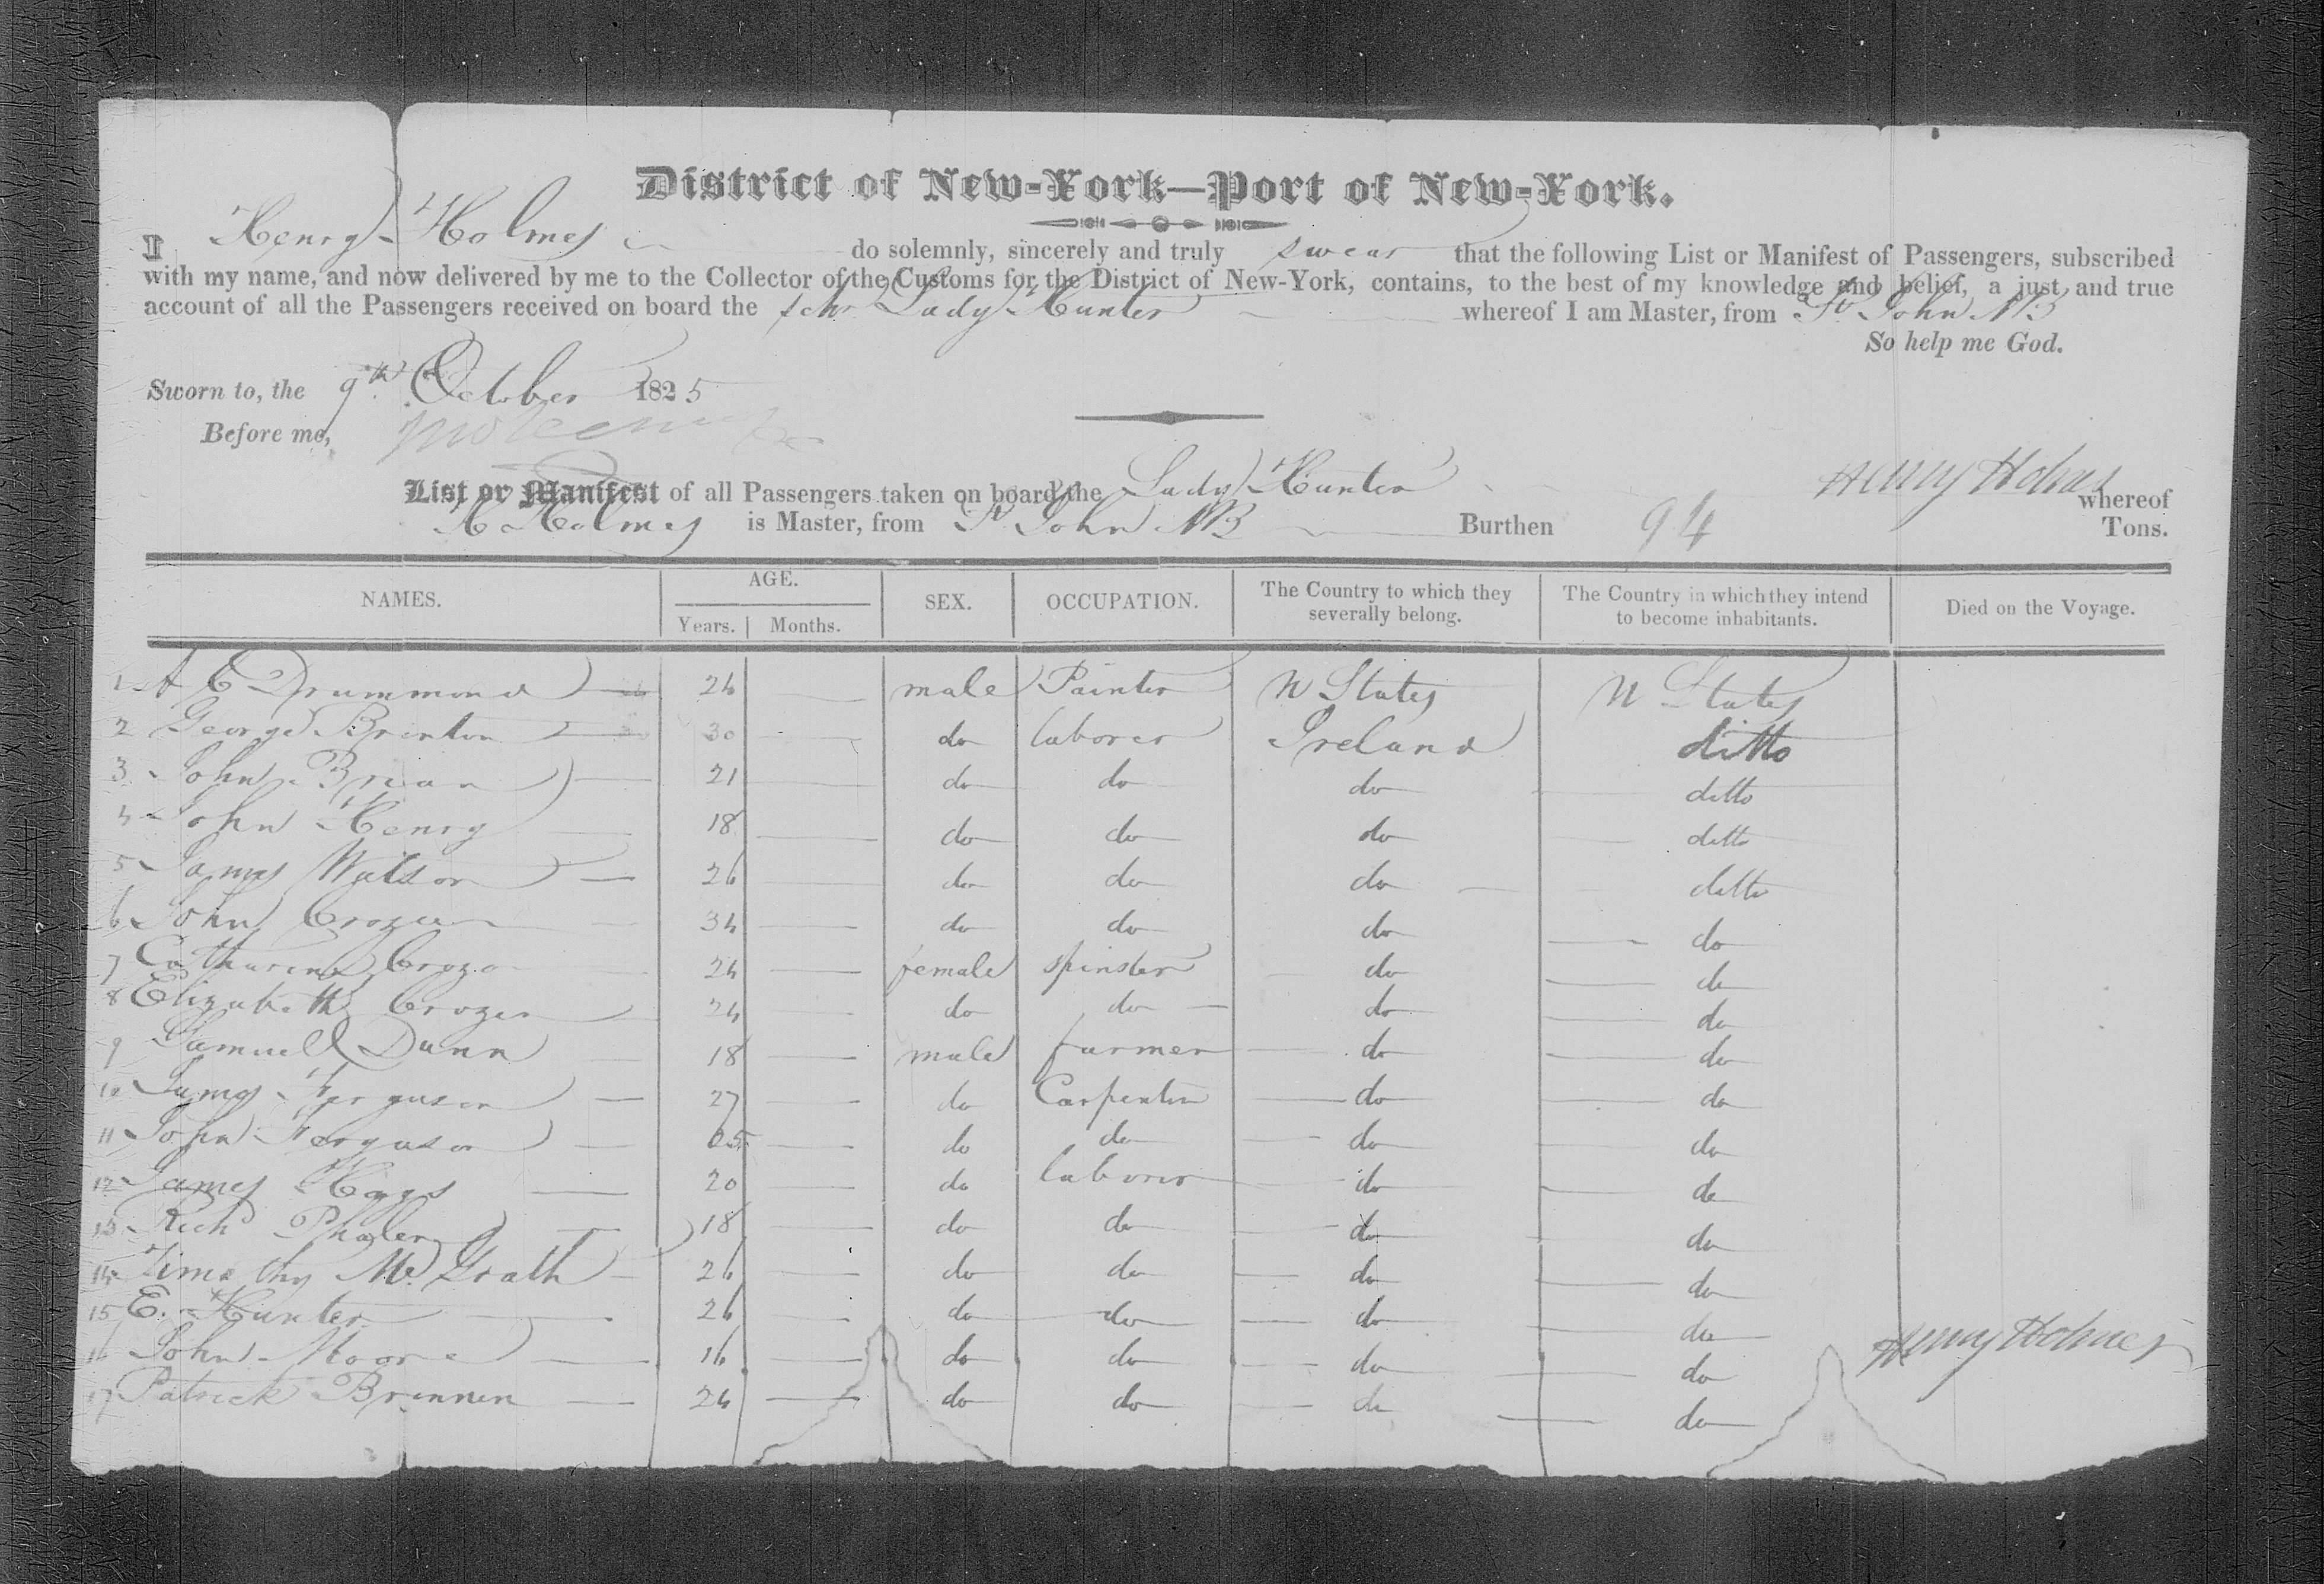 District of New-York—Port of New-York.
I Henry Holmes do solemnly, sincerely and truly swear that the following List or Manifest of Passengers, subscribed
with my name, and now delivered by me to the Collector of the Customs for the District of New-York, contains, to the best of my knowledge and belief, a just and true
account of all the Passengers received on board the schr Lady Hunter whereof I am Master, from St John NB
So help me God.
Sworn to, the 9th October 1825
Before me,
Henry Holmes
List or Manifest of all Passengers taken on board the Lady Hunter whereof
H Holmes is Master, from St John NB Burthen 94 Tons.
NAMES. AGE. Years. Months. SEX. OCCUPATION. The Country to which they severally belong. The Country in which they intend to become inhabitants. Died on the Voyage.
1 A C Drummond 24 male Painter U States U States
2 George Brinton 30 do laborer Ireland ditto
3 John Brian 21 do do do ditto
4 John Henry 18 do do do ditto
5 James Watson 26 do do do ditto
6 John Crozer 34 do do do do
7 Catharine Crozer 24 female spinster do do
8 Elizabeth Crozer 24 do do do do
9 Samuel Dunn 18 male farmer do do
10 James Ferguson 27 do Carpenter do do
11 John Ferguson 25 do do do do
12 James Haggs 20 do laborer do do
13 Rich Phaler 18 do do do do
14 Timothy Mc Grath 26 do do do do
15 E. Hunter 26 do do do do
16 John Moore 16 do do do do
17 Patrick Brennen 24 do do do do
Henry Holmes